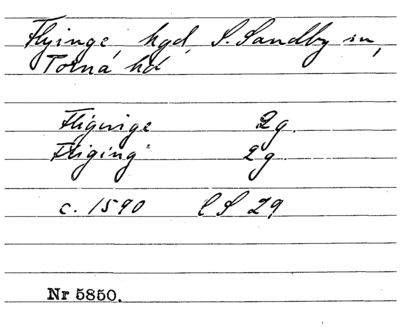 Flyinge, hgd, S. Sandby sn,
Torna hd
Fligwige 2g.
Fliging 2g
c. 1590 CS 29
Nr 5850.